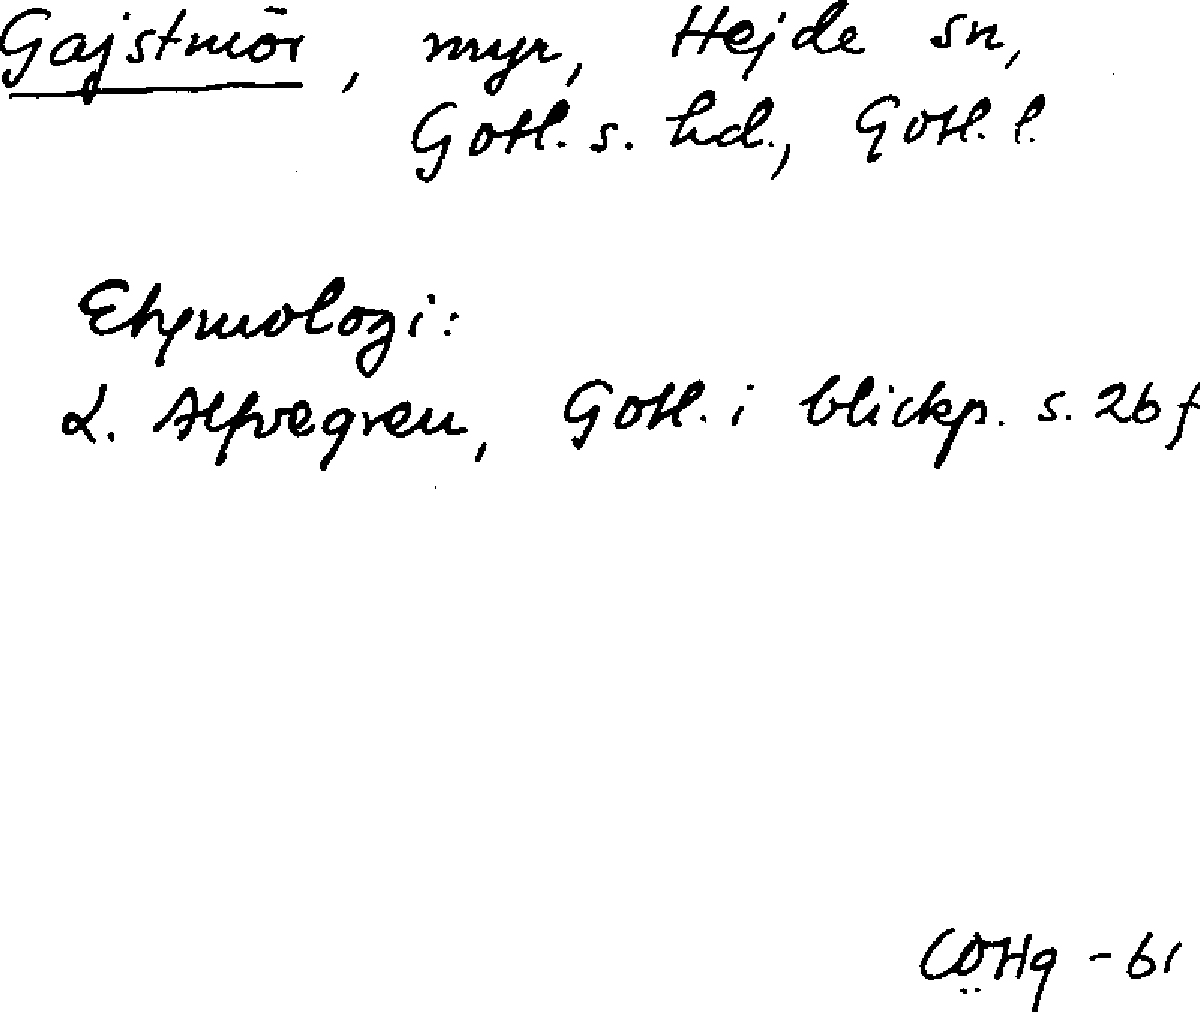 Gajstmör, myr, Hejde sn,
Gotl. s. hd., Gotl. l.
Etymologi:
L. Alfvegren, Gotl. i blickp. s. 26 f
COHg - 61